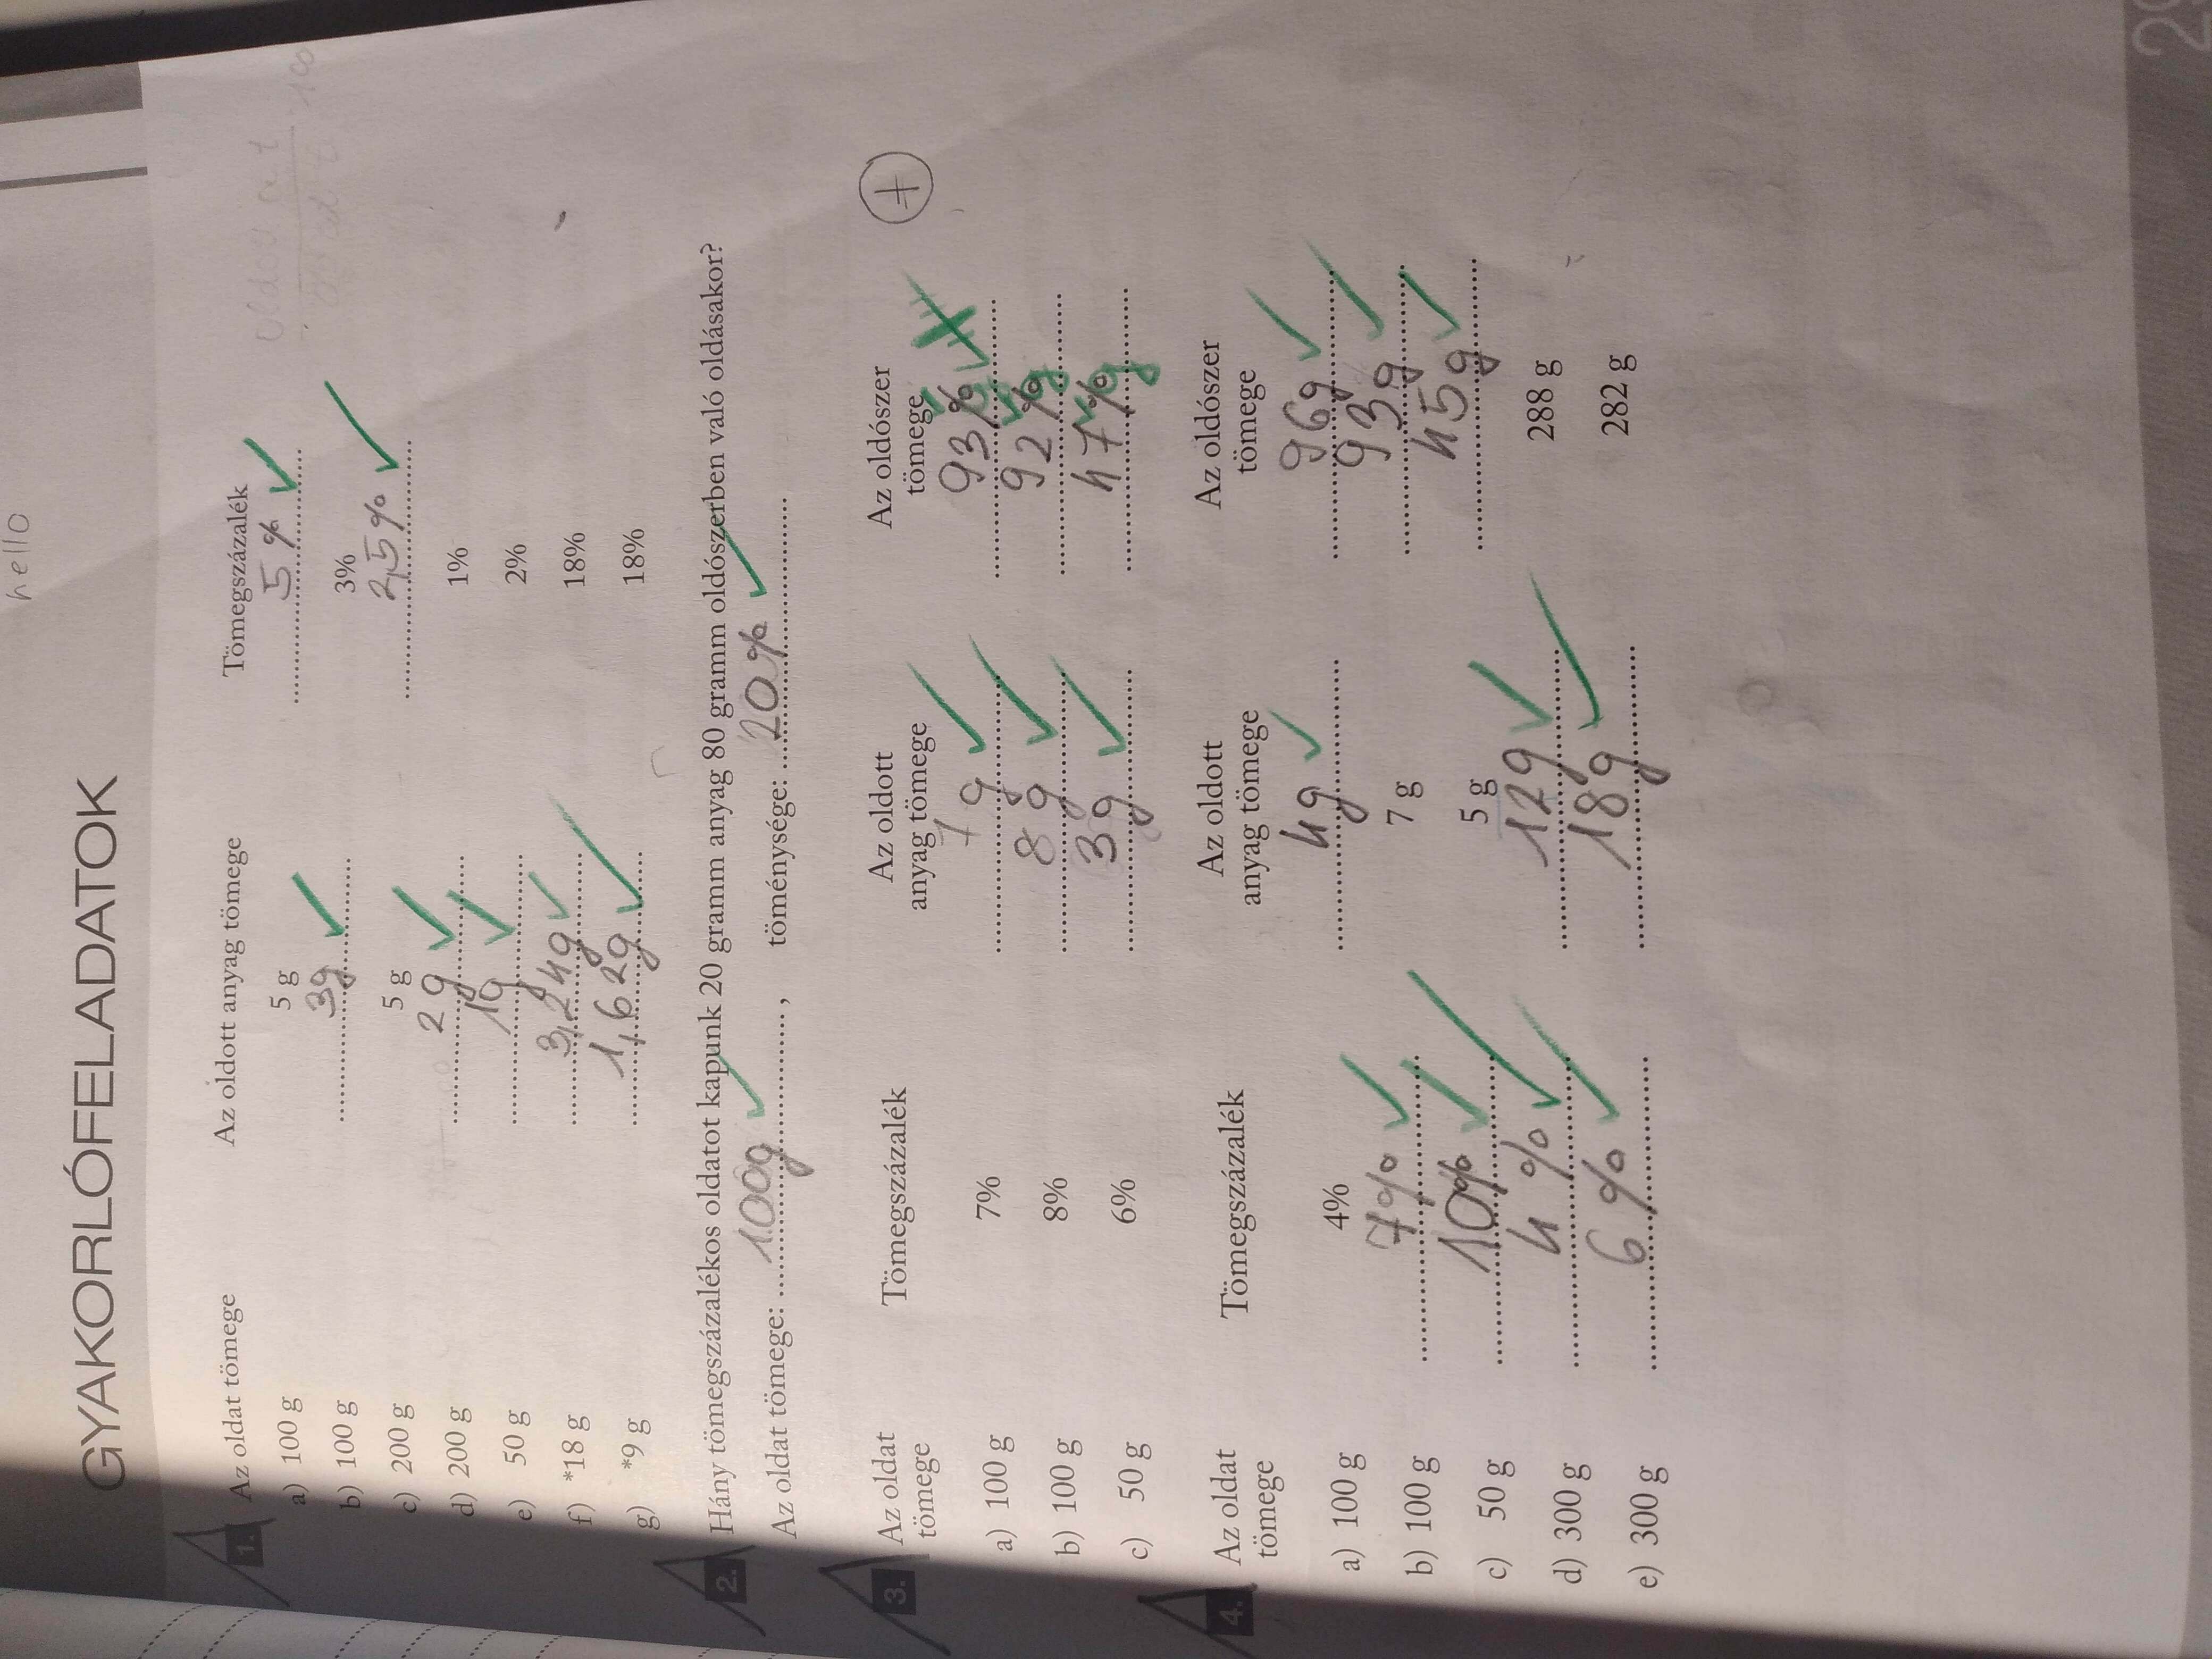 hello
GYAKORLÓFELADATOK
1. Az oldat tömege Az oldott anyag tömege Tömegszázalék
a) 100 g 5 g 5 %
b) 100 g 3g 3%
c) 200 g 5 g 2,5 %
d) 200 g 2 g 1%
e) 50 g 1g 2%
f) *18 g 3,24g 18%
g) *9 g 1,62g 18%
2. Hány tömegszázalékos oldatot kapunk 20 gramm anyag 80 gramm oldószerben való oldásakor?
Az oldat tömege: 100g, töménysége: 20%
3. Az oldat tömege Tömegszázalék Az oldott anyag tömege Az oldószer tömege
a) 100 g 7% 7 g 93% g
b) 100 g 8% 8 g 92% g
c) 50 g 6% 3g 47% g
+
4. Az oldat tömege Tömegszázalék Az oldott anyag tömege Az oldószer tömege
a) 100 g 4% 4g 96g
b) 100 g 7% 7 g 93g
c) 50 g 10% 5 g 45g
d) 300 g 4 % 12g 288 g
e) 300 g 6 % 18g 282 g